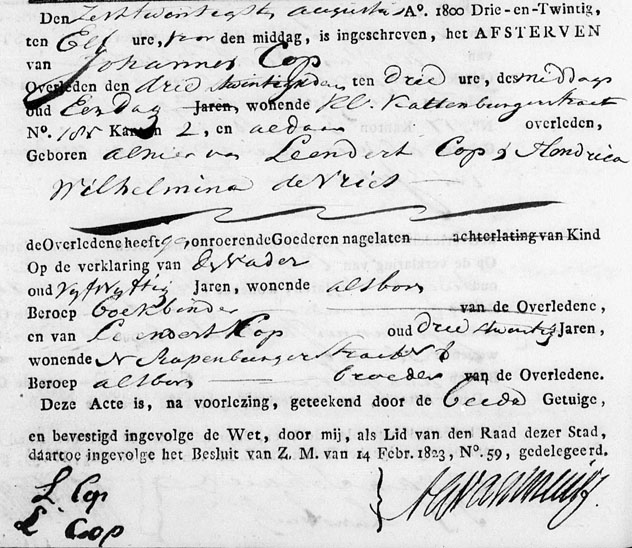 Den Zes&twintigste augustus A°. 1800 Drie-en-Twintig,
ten Elf ure, voor den middag, is ingeschreven, het AFSTERVEN
van Johannes Cop
Overleden den drie & twintigsten ten Drie ure, des middags
oud Een dag Jaren, wonende Kl. Kattenburgerstraat
N°. 188 Kanton 2, en aldaar overleden,
Geboren alhier van Leendert Cop & Hendrica
Wilhelmina de Vries
de Overledene heeft onroerende Goederen nagelaten achterlating van Kind
Op de verklaring van de Vader
oud Vyf & Vyftig Jaren, wonende alsbov
Beroep boekbinder van de Overledene,
en van Leendert Cop oud drie & twintig Jaren,
wonende N Rapenburgerstraat N 8
Beroep alsbov broeder van de Overledene.
Deze Acte is, na voorlezing, geteekend door de beede Getuige,
en bevestigd ingevolge de Wet, door mij, als Lid van den Raad dezer Stad,
daartoe ingevolge het Besluit van Z. M. van 14 Febr. 1823, N°. 59, gedelegeerd.
L. Cop
L Coop